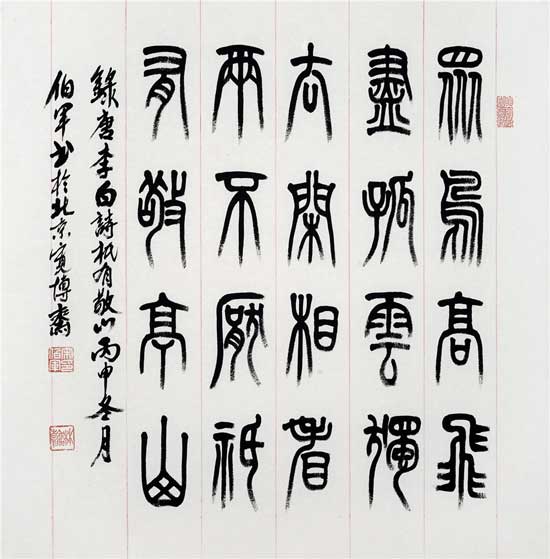 眾鳥高飛
盡孤雲獨
去閑相看
兩不厭祇
有敬亭山
錄唐李白詩有敬山丙申冬月
伯軍書於北京寬博齋